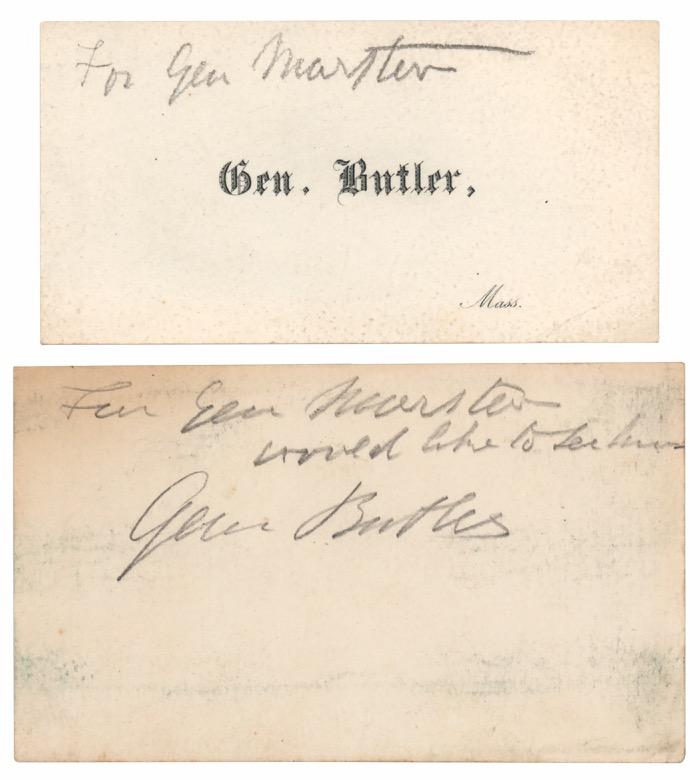 For Gen Marston
Gen. Butler,
Mass.
For Gen Marston
would like to see him
Gen Butler